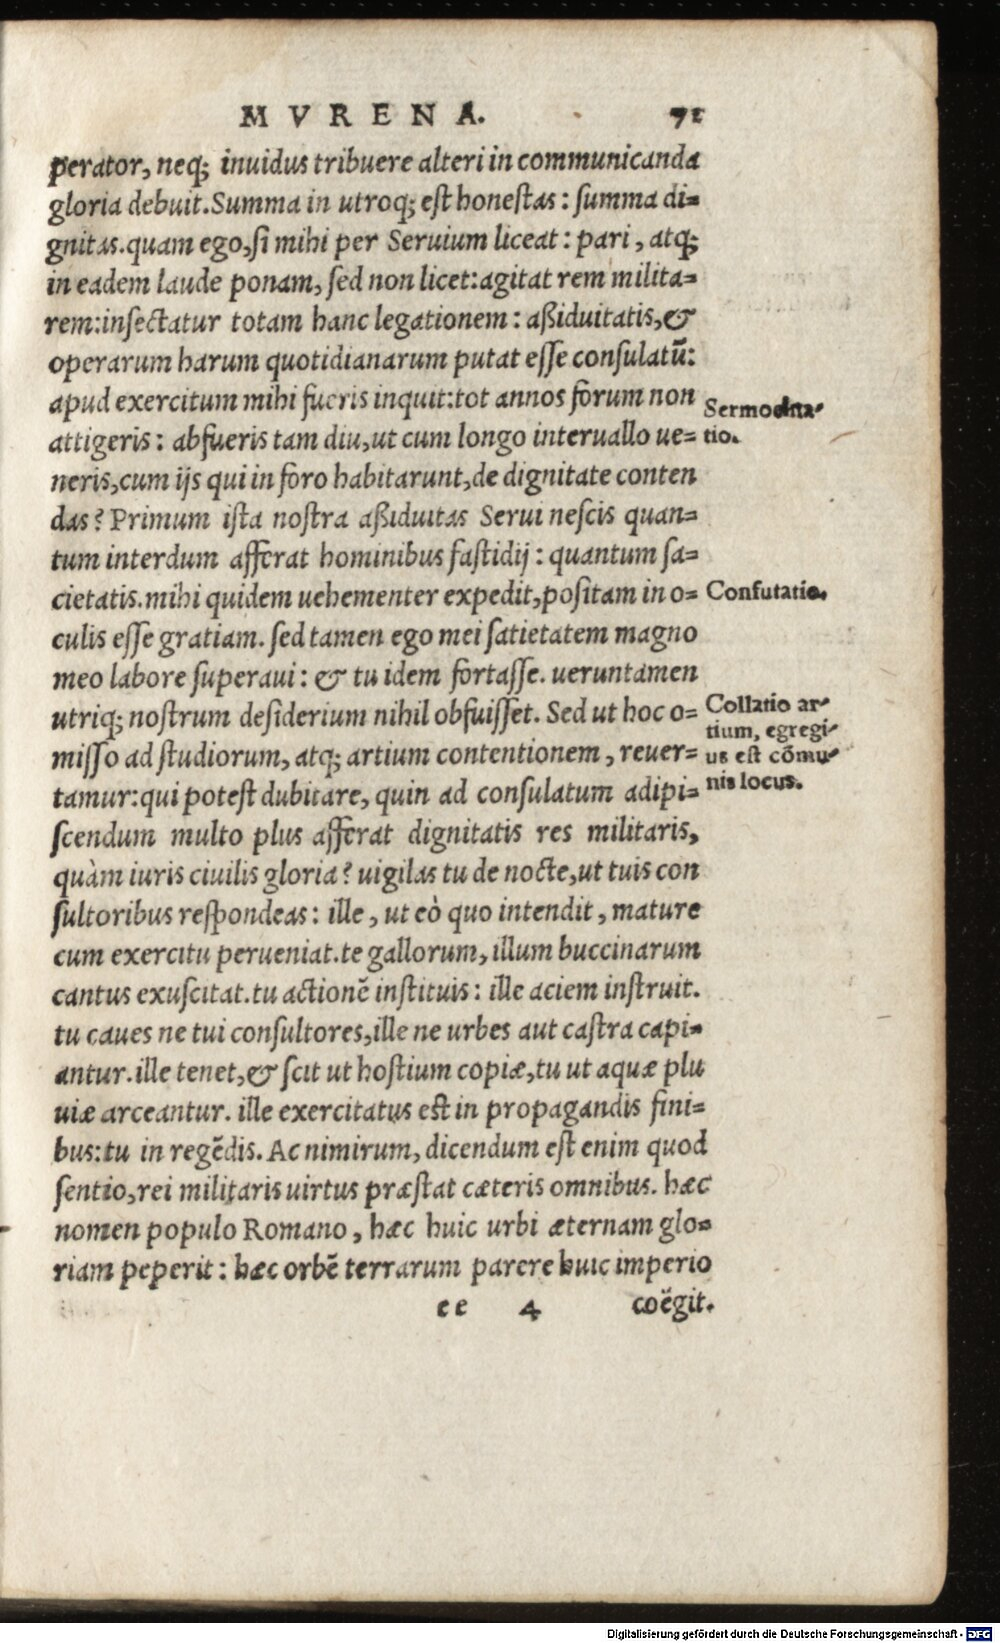 MVRENA. 71
perator, neq; inuidus tribuere alteri in communicanda
gloria debuit. Summa in utroq; est honestas: summa di-
gnitas. quam ego, si mihi per Seruium liceat: pari, atq;
in eadem laude ponam, sed non licet: agitat rem milita-
rem: insectatur totam hanc legationem: aßiduitatis, &
operarum harum quotidianarum putat esse consulatū:
apud exercitum mihi fueris inquit: tot annos forum non
attigeris: abfueris tam diu, ut cum longo interuallo ue-
neris, cum ijs qui in foro habitarunt, de dignitate conten
das? Primum ista nostra aßiduitas Serui nescis quan-
tum interdum afferat hominibus fastidij: quantum sa-
cietatis. mihi quidem uehementer expedit, positam in o-
culis esse gratiam. sed tamen ego mei satietatem magno
meo labore superaui: & tu idem fortasse. ueruntamen
utriq; nostrum desiderium nihil obfuisset. Sed ut hoc o-
misso ad studiorum, atq; artium contentionem, reuer-
tamur: qui potest dubitare, quin ad consulatum adipi-
scendum multo plus afferat dignitatis res militaris,
quàm iuris ciuilis gloria? uigilas tu de nocte, ut tuis con
sultoribus respondeas: ille, ut eò quo intendit, mature
cum exercitu perueniat. te gallorum, illum buccinarum
cantus exuscitat. tu actionē instituis: ille aciem instruit.
tu caues ne tui consultores, ille ne urbes aut castra capi-
antur. ille tenet, & scit ut hostium copiæ, tu ut aquæ plu
uiæ arceantur. ille exercitatus est in propagandis fini-
bus: tu in regēdis. Ac nimirum, dicendum est enim quod
sentio, rei militaris uirtus præstat cæteris omnibus. hæc
nomen populo Romano, hæc huic urbi æternam glo-
riam peperit: hæc orbē terrarum parere huic imperio
ee 4 coëgit.
Sermocina-
tio.
Confutatio.
Collatio ar-
tium, egregi-
us est cōmu-
nis locus.
Digitalisierung gefördert durch die Deutsche Forschungsgemeinschaft - DFG